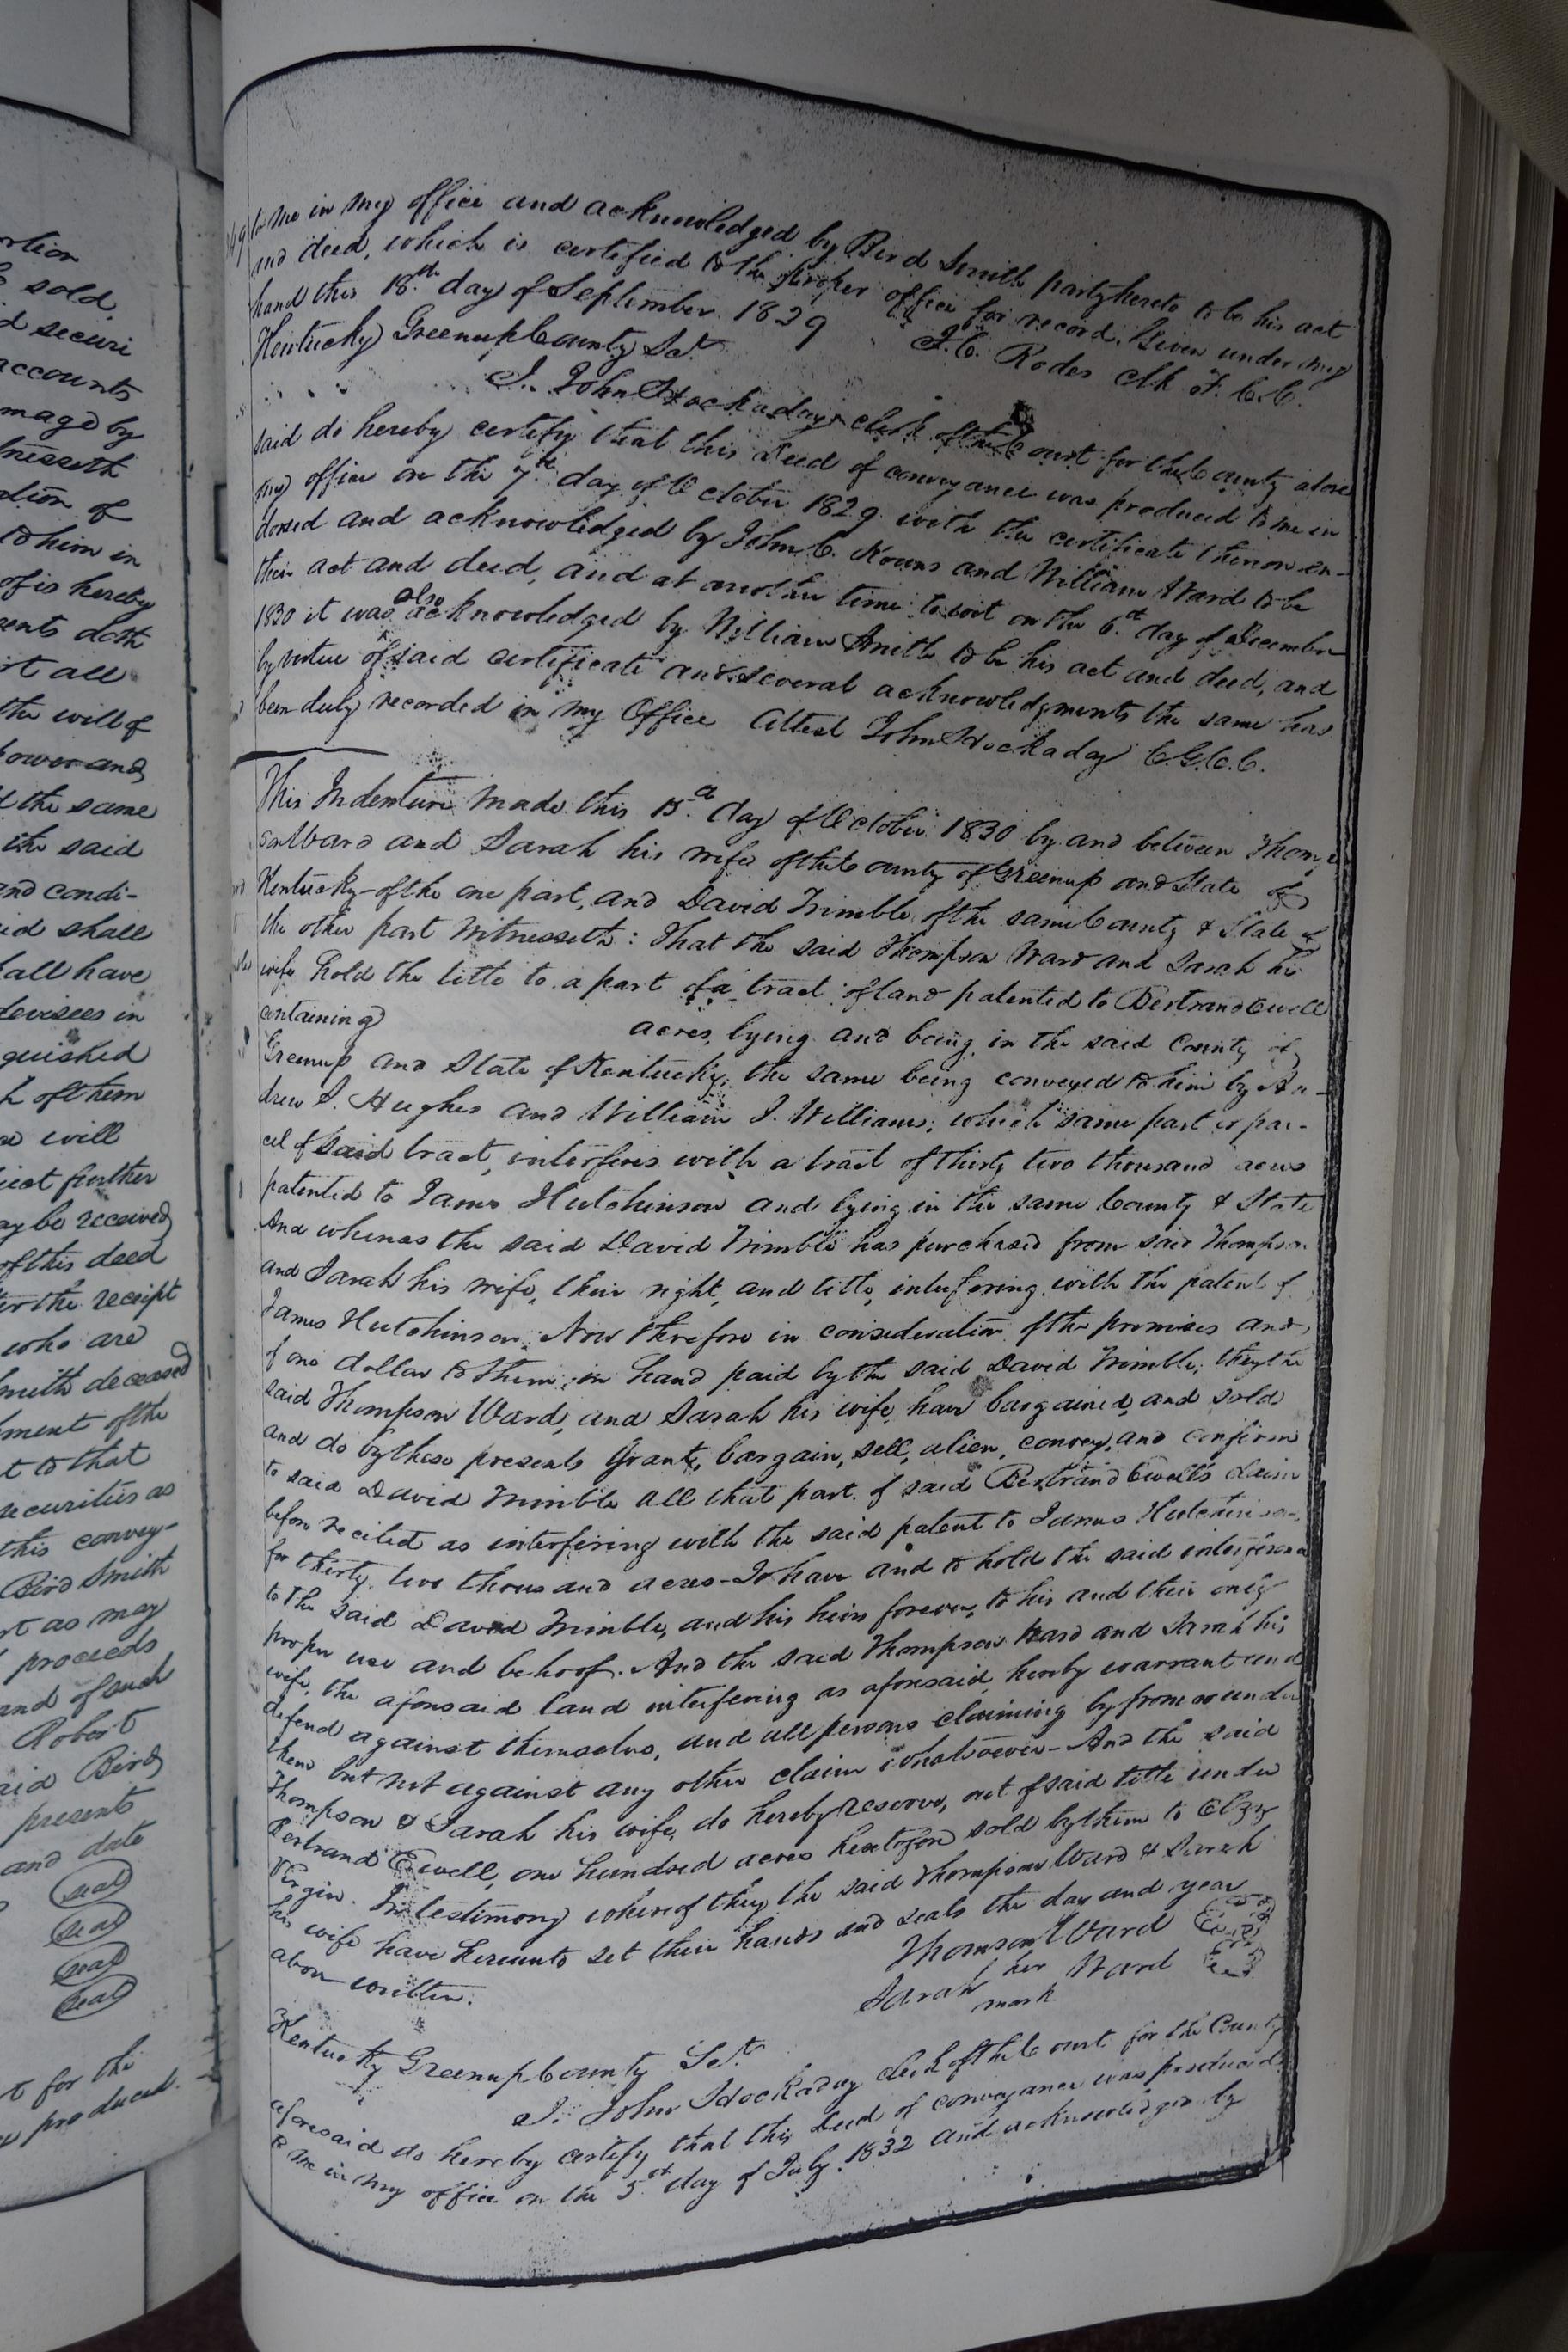 rtion
& sold,
d securi
accounts
mage by
tnesseth
ation of
to him in
of is hereby
sents doth
rt all
the will of
power and
d the same
ith said
and condi-
id shall
hall have
devisees in
quished
h of them
will
ject further
ay be received
of this deed
ter the receipt
who are
Smith deceased
ment of the
t to that
securities as
this convey-
Bird Smith
rt as may
proceeds
and of such
Robert
aid Bird
presents
and date
seal
seal
seal
seal
t for the
produced.
to me in my office and acknowledged by Bird Smith party hereto to be his act
and deed, which is certified to the proper office for record. Given under my
hand this 18th day of September 1829 J. C. Rodes Clk F. C. C.
Kentucky Greenup County Sct
I. John Hockaday clerk of the Court for the County afore
said do hereby certify that this Deed of conveyance was produced to me in
my office on the 7th day of October 1829 with the certificate thereon en-
dorsed and acknowledged by John C. Kouns and William Ward to be
their act and deed, and at another time towit on the 6th day of December
1830 it was also acknowledged by William Smith to be his act and deed, and
by virtue of said certificate and several acknowledgments the same has
been duly recorded in my Office Attest John Hockaday C.G.C.C.
This Indenture made this 15th day of October 1830 by and between Thomp
son Ward and Sarah his wife of the County of Greenup and State of
Kentucky of the one part, and David Trimble of the same County & State of
the other part Witnesseth: That the said Thompson Ward and Sarah his
wife hold the title to a part of a tract of land patented to Bertrand Ewell
containing acres, lying and being in the said County of
Greenup and State of Kentucky, the same being conveyed to him by An-
drew S. Hughes and William J. Williams; which same part or par-
cel of said tract, interferes with a tract of thirty two thousand acres
patented to James Hutchinson and lying in the same County & State
And whereas the said David Trimble has purchased from said Thompson
and Sarah his wife, their right, and title, interfering with the patent of
James Hutchinson. Now therefore in consideration of the premises and
of one dollar to them in hand paid by the said David Trimble, they the
said Thompson Ward, and Sarah his wife, have bargained, and sold
and do by these presents Grant, bargain, sell, alien, convey, and confirm
to said David Trimble all that part of said Bertrand Ewell's claim
before recited as interfering with the said patent to James Hutchinson,
for thirty two thousand acres - To have and to hold the said interference
to the said David Trimble, and his heirs forever, to his and their only
proper use and behoof. And the said Thompson Ward and Sarah his
wife, the aforesaid land interfering as aforesaid, hereby warrant and
defend against themselves, and all persons claiming by from or under
them but not against any other claim whatsoever - And the said
Thompson & Sarah his wife, do hereby reserve, out of said title under
Bertrand Ewell, one hundred acres heretofore sold by them to Elzy
Virgin. In testimony whereof they the said Thompson Ward & Sarah
his wife have hereunto set their hands and seals the day and year
above written. Thomson Ward
Sarah her mark Ward
Kentucky Greenup County Sct
I. John Hockaday clerk of the Court for the County
aforesaid do hereby certify that this Deed of conveyance was produced
to me in my office on the 5th day of July 1832 and acknowledged by